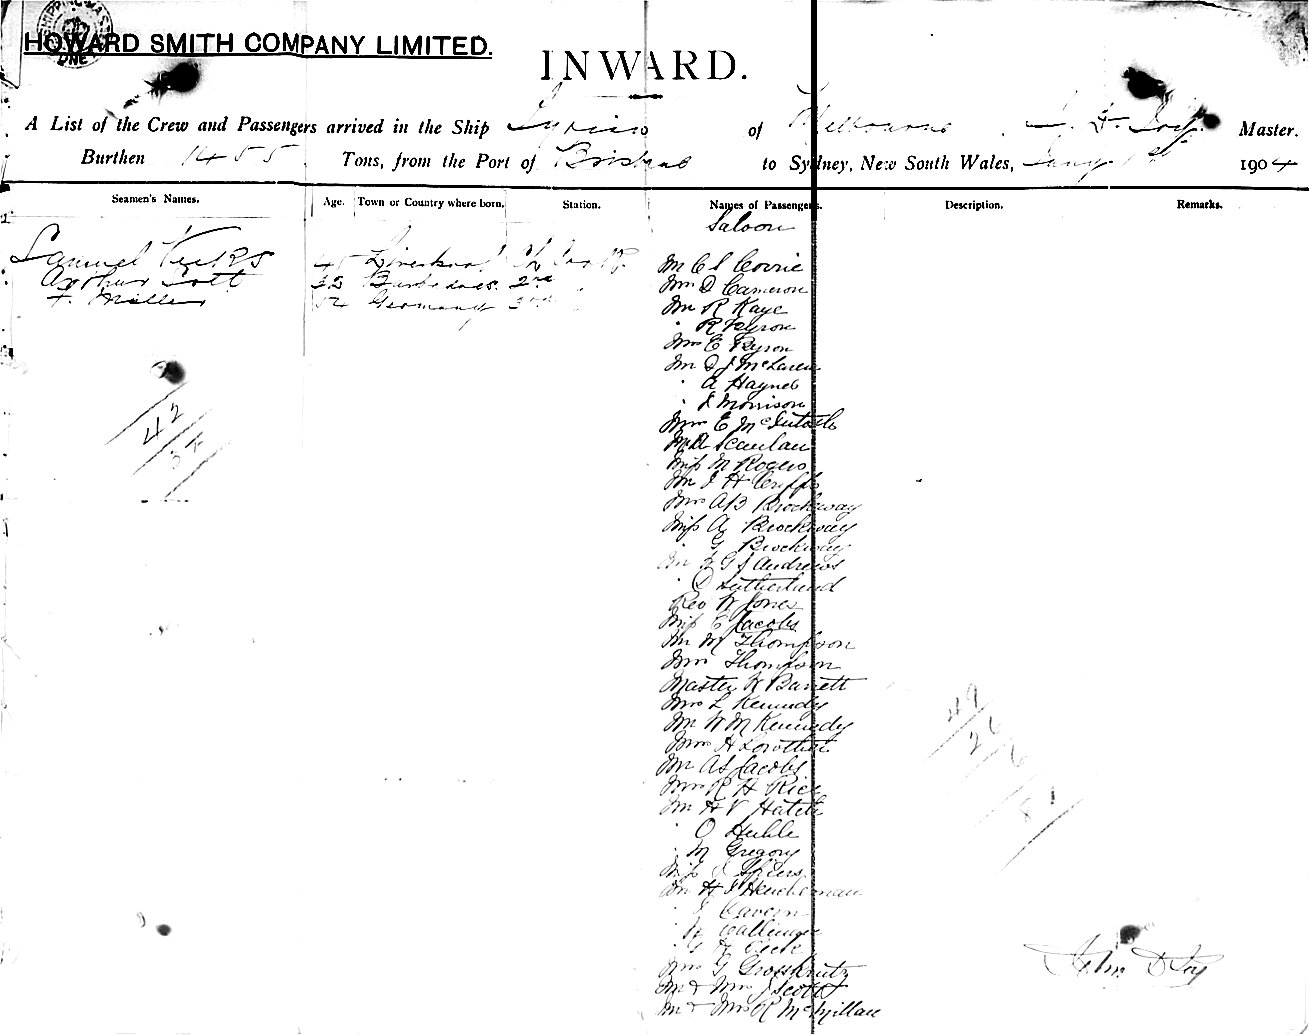 HOWARD SMITH COMPANY LIMITED.
INWARD.
A List of the Crew and Passengers arrived in the Ship Tyrian of Melbourne, Master.
Burthen 1455 Tons, from the Port of Brisbane to Sydney, New South Wales, Jany 1st 1904
Seamen's Names. Age. Town or Country where born. Station. Names of Passengers. Description. Remarks.
Saloon
Samuel 45 Liverpool
Arthur Scott 32 Barbadoes 2nd
F. Miller 52 Germany 2nd
Mr C S Corrie
Mrs D Cameron
Mr R Kaye
" R Ryron
Mrs E Ryron
Mr D J McLaren
" A Haynes
" J Morrison
Mrs E McIntosh
Mr A Scanlan
Miss M Rogers
Mr J H
Mrs A B Brockway
Miss A Brockway
" G Brockway
Mr G J Andrews
" D Sutherland
Rev W Jones
Miss E Jacobs
Mr M Thompson
Mrs Thompson
Master W Barrett
Mrs L Kennedy
Mr W M Kennedy
Mrs H Lowther
Mr A S Jacobs
Mrs R H Rice
Mr H V Hatch
" O Heuble
" M Gregory
Miss J Spiers
Mr H J
" J Cavern
" W
" G H Peek
Mrs G Grosskrutz
Mr & Mrs J Scott
Mr & Mrs R McMillan
42
34
49
26